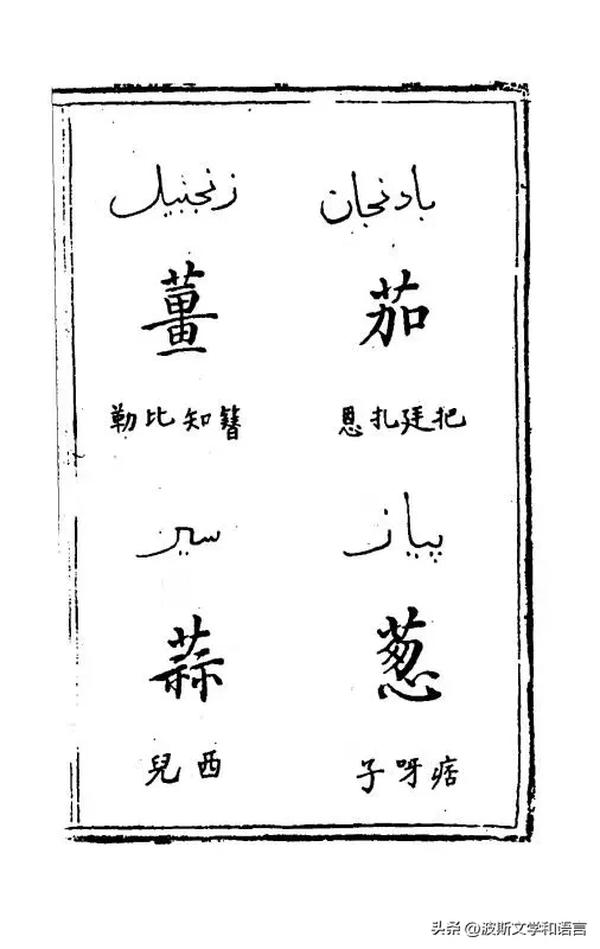 بادنجان
茄
把廷扎恩
زنجبیل
薑
簪知比勒
پیاز
葱
痞呀子
سیر
蒜
西兒
头条 @波斯文学和语言